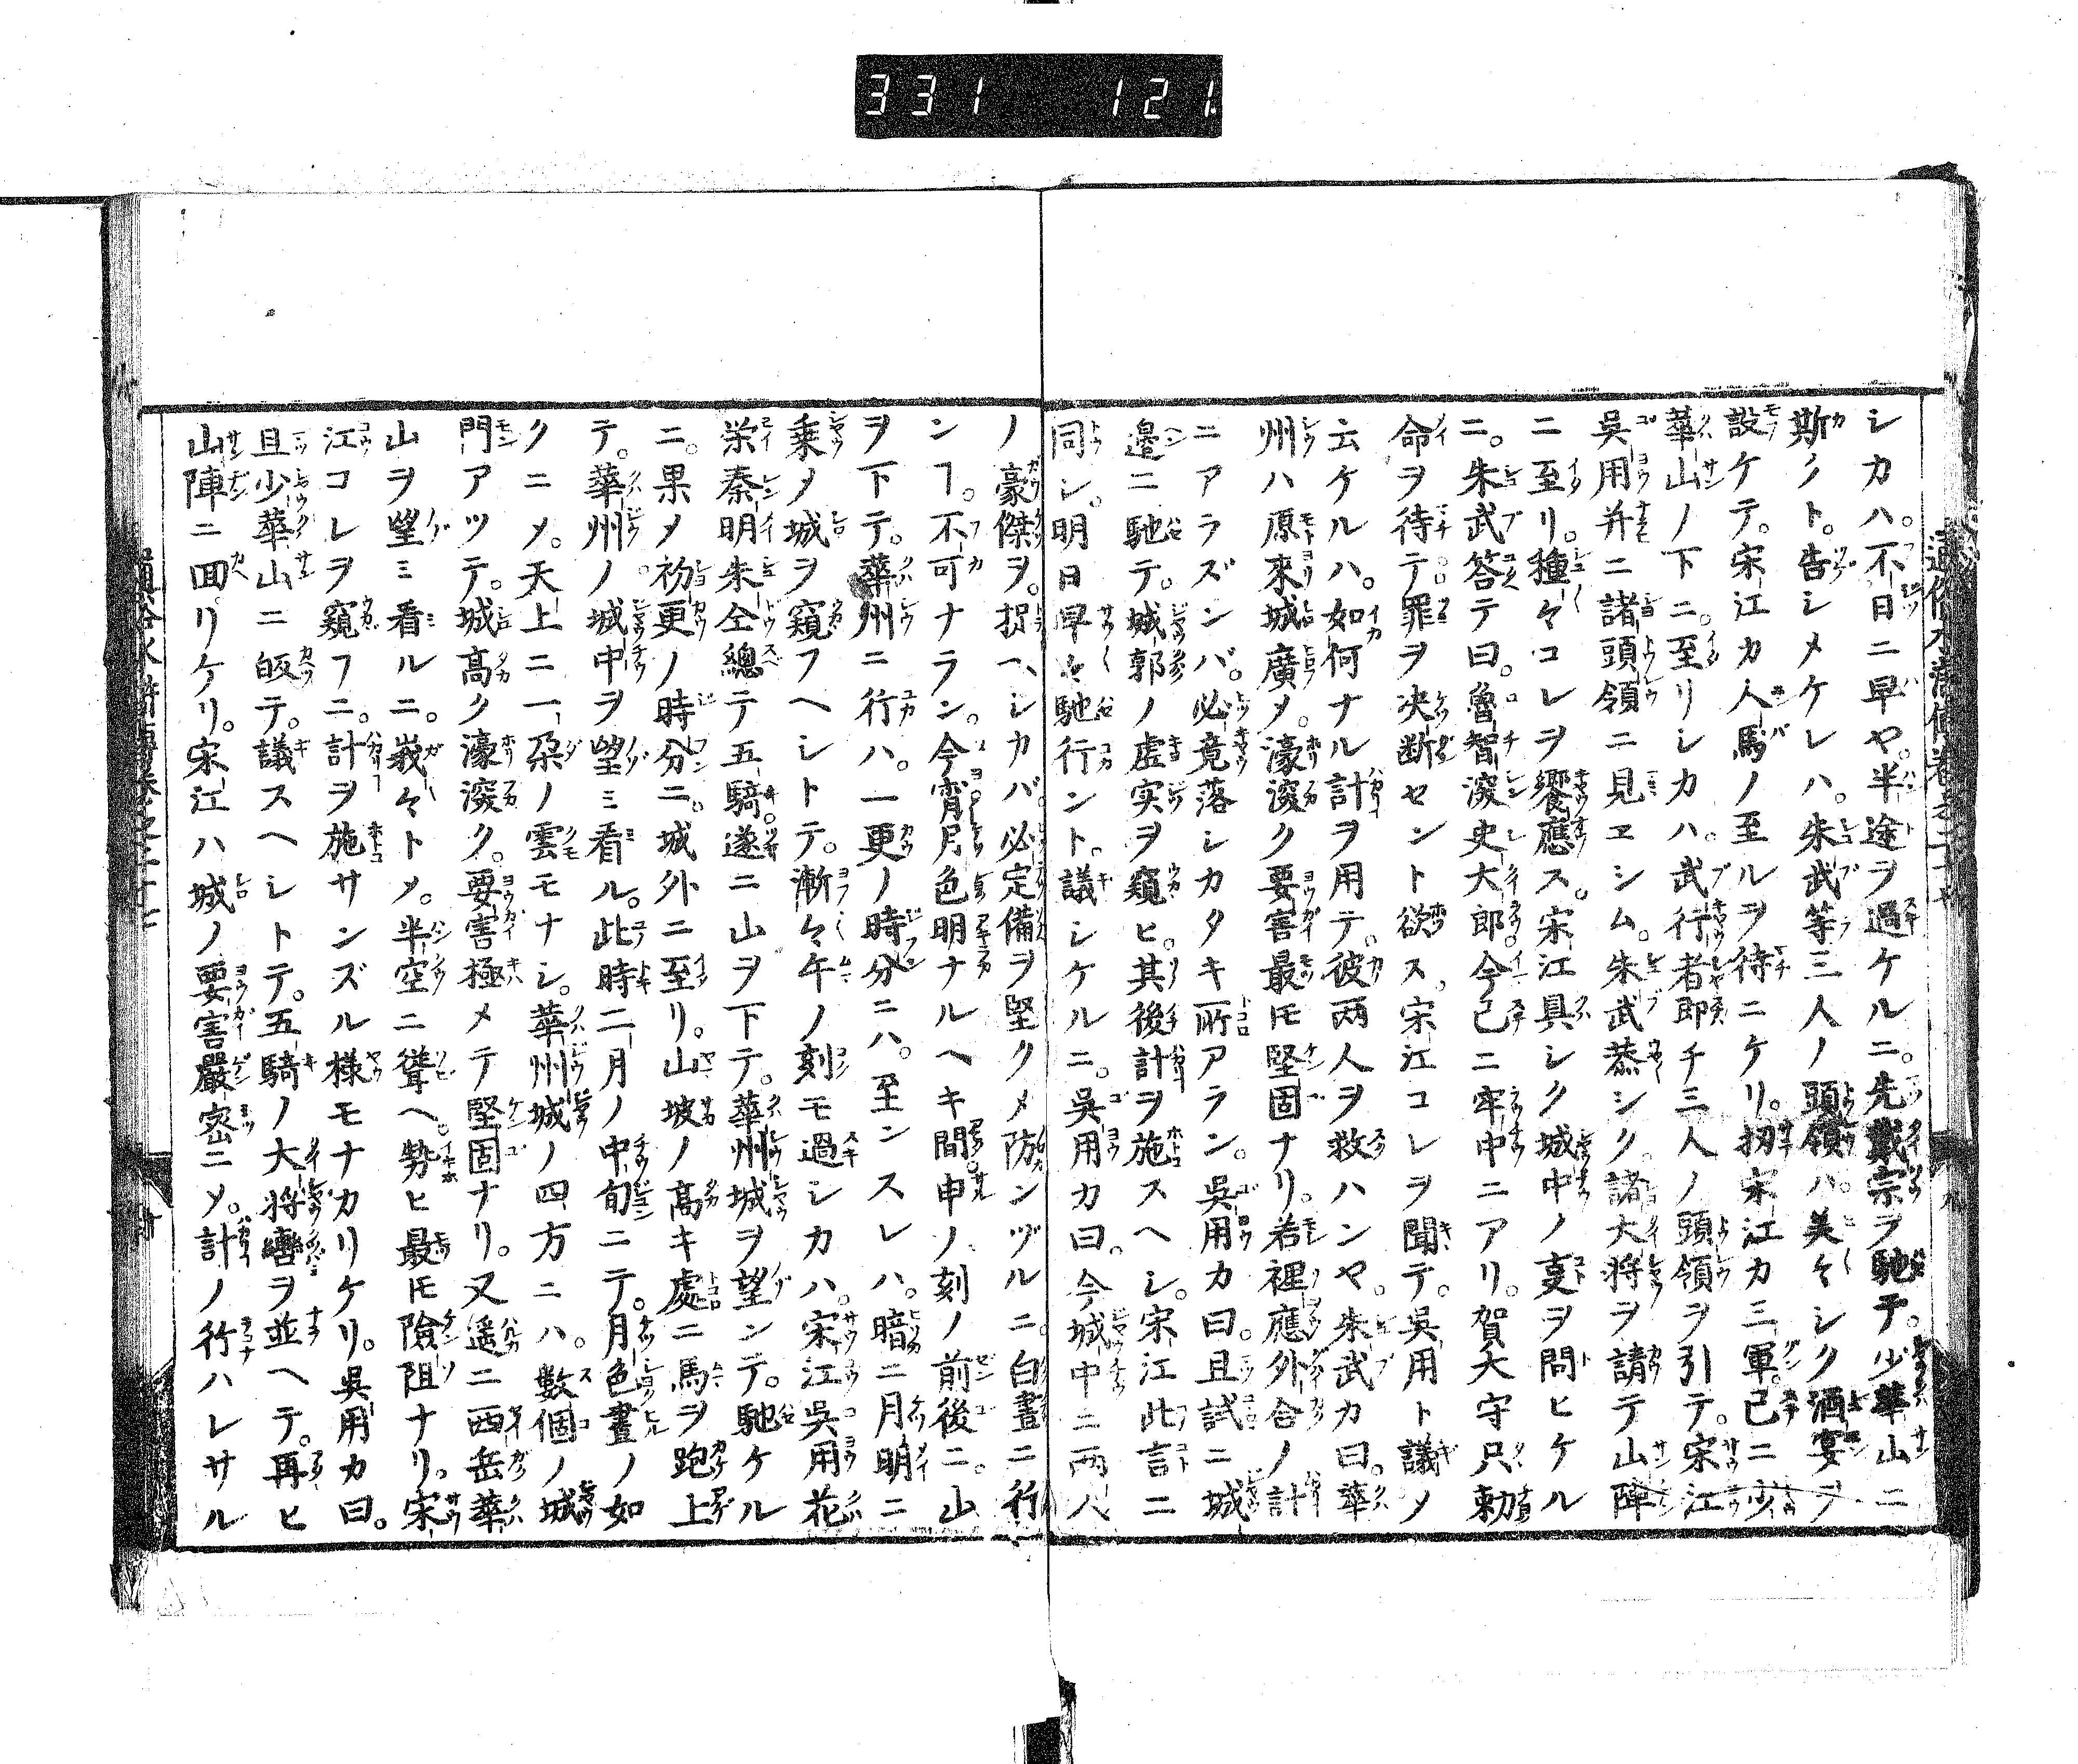 331 121
シカハ。不日ニ早ヤ。半途ヲ過ケルニ。先戴宗ヲ馳テ。少華山ニ
斯クト。告シメケレハ。朱武等三人ノ頭領ハ。美々シク酒宴ヲ
設ケテ。宋江カ人馬ノ至ルヲ待ニケリ。扨宋江カ三軍。已ニ少
華山ノ下ニ。至リシカハ。武行者即チ三人ノ頭領ヲ引テ。宋江
呉用并ニ諸頭領ニ見ヱシム。朱武恭シク。諸大将ヲ請テ山陣
ニ至リ。種々コレヲ饗應ス。宋江具シク城中ノ叓ヲ問ヒケル
ニ。朱武答テ曰。魯智深史大郎。今已ニ牢中ニアリ。賀大守只勅
命ヲ待テ罪ヲ决断セント欲ス。宋江コレヲ聞テ。呉用ト議メ
云ケルハ。如何ナル計ヲ用テ。彼两人ヲ救ハンヤ。朱武カ曰。華
州ハ原來城廣メ。濠深ク要害最モ堅固ナリ。若裡應外合ノ計
ニアラズンバ。必竟落シカタキ所アラン。呉用カ曰。且試ニ城
邊ニ馳テ。城郭ノ虚実ヲ窺ヒ。其後計ヲ施スヘシ。宋江此言ニ
同シ。明日早々馳行ント。議シケルニ。呉用カ曰。今城中ニ两人
ノ豪傑ヲ。捉ヘシカバ。必定備ヲ堅クメ防ンヅルニ。白晝ニ行
ンヿ。不可ナラン。今宵月色明ナルヘキ間。申ノ刻ノ前後ニ。山
ヲ下テ。華州ニ行ハ。一更ノ時分ニハ。至ンスレハ。暗ニ月明ニ
乗メ城ヲ窺フヘシトテ。漸々午ノ刻モ過シカハ。宋江呉用花
栄秦明朱仝總テ五騎。遂ニ山ヲ下テ。華州城ヲ望ンデ。馳ケル
ニ。果メ初更ノ時分ニ。城外ニ至リ。山坡ノ高キ處ニ馬ヲ跑上
テ。華州ノ城中ヲ望ミ看ル。此時二月ノ中旬ニテ。月色晝ノ如
クニメ。天上ニ一朶ノ雲モナシ。華州城ノ四方ニハ。數個ノ城
門アツテ。城高ク濠深ク。要害極メテ堅固ナリ。又遥ニ西岳華
山ヲ望ミ看ルニ。峩々トメ。半空ニ聳ヘ。勢ヒ最モ險阻ナリ。宋
江コレヲ窺フニ。計ヲ施サンズル様モナカリケリ。呉用カ曰。
且少華山ニ皈テ。議スヘシトテ。五騎ノ大将轡ヲ並ヘテ。再ヒ
山陣ニ囬リケリ。宋江ハ城ノ要害嚴密ニメ。計ノ行ハレサル